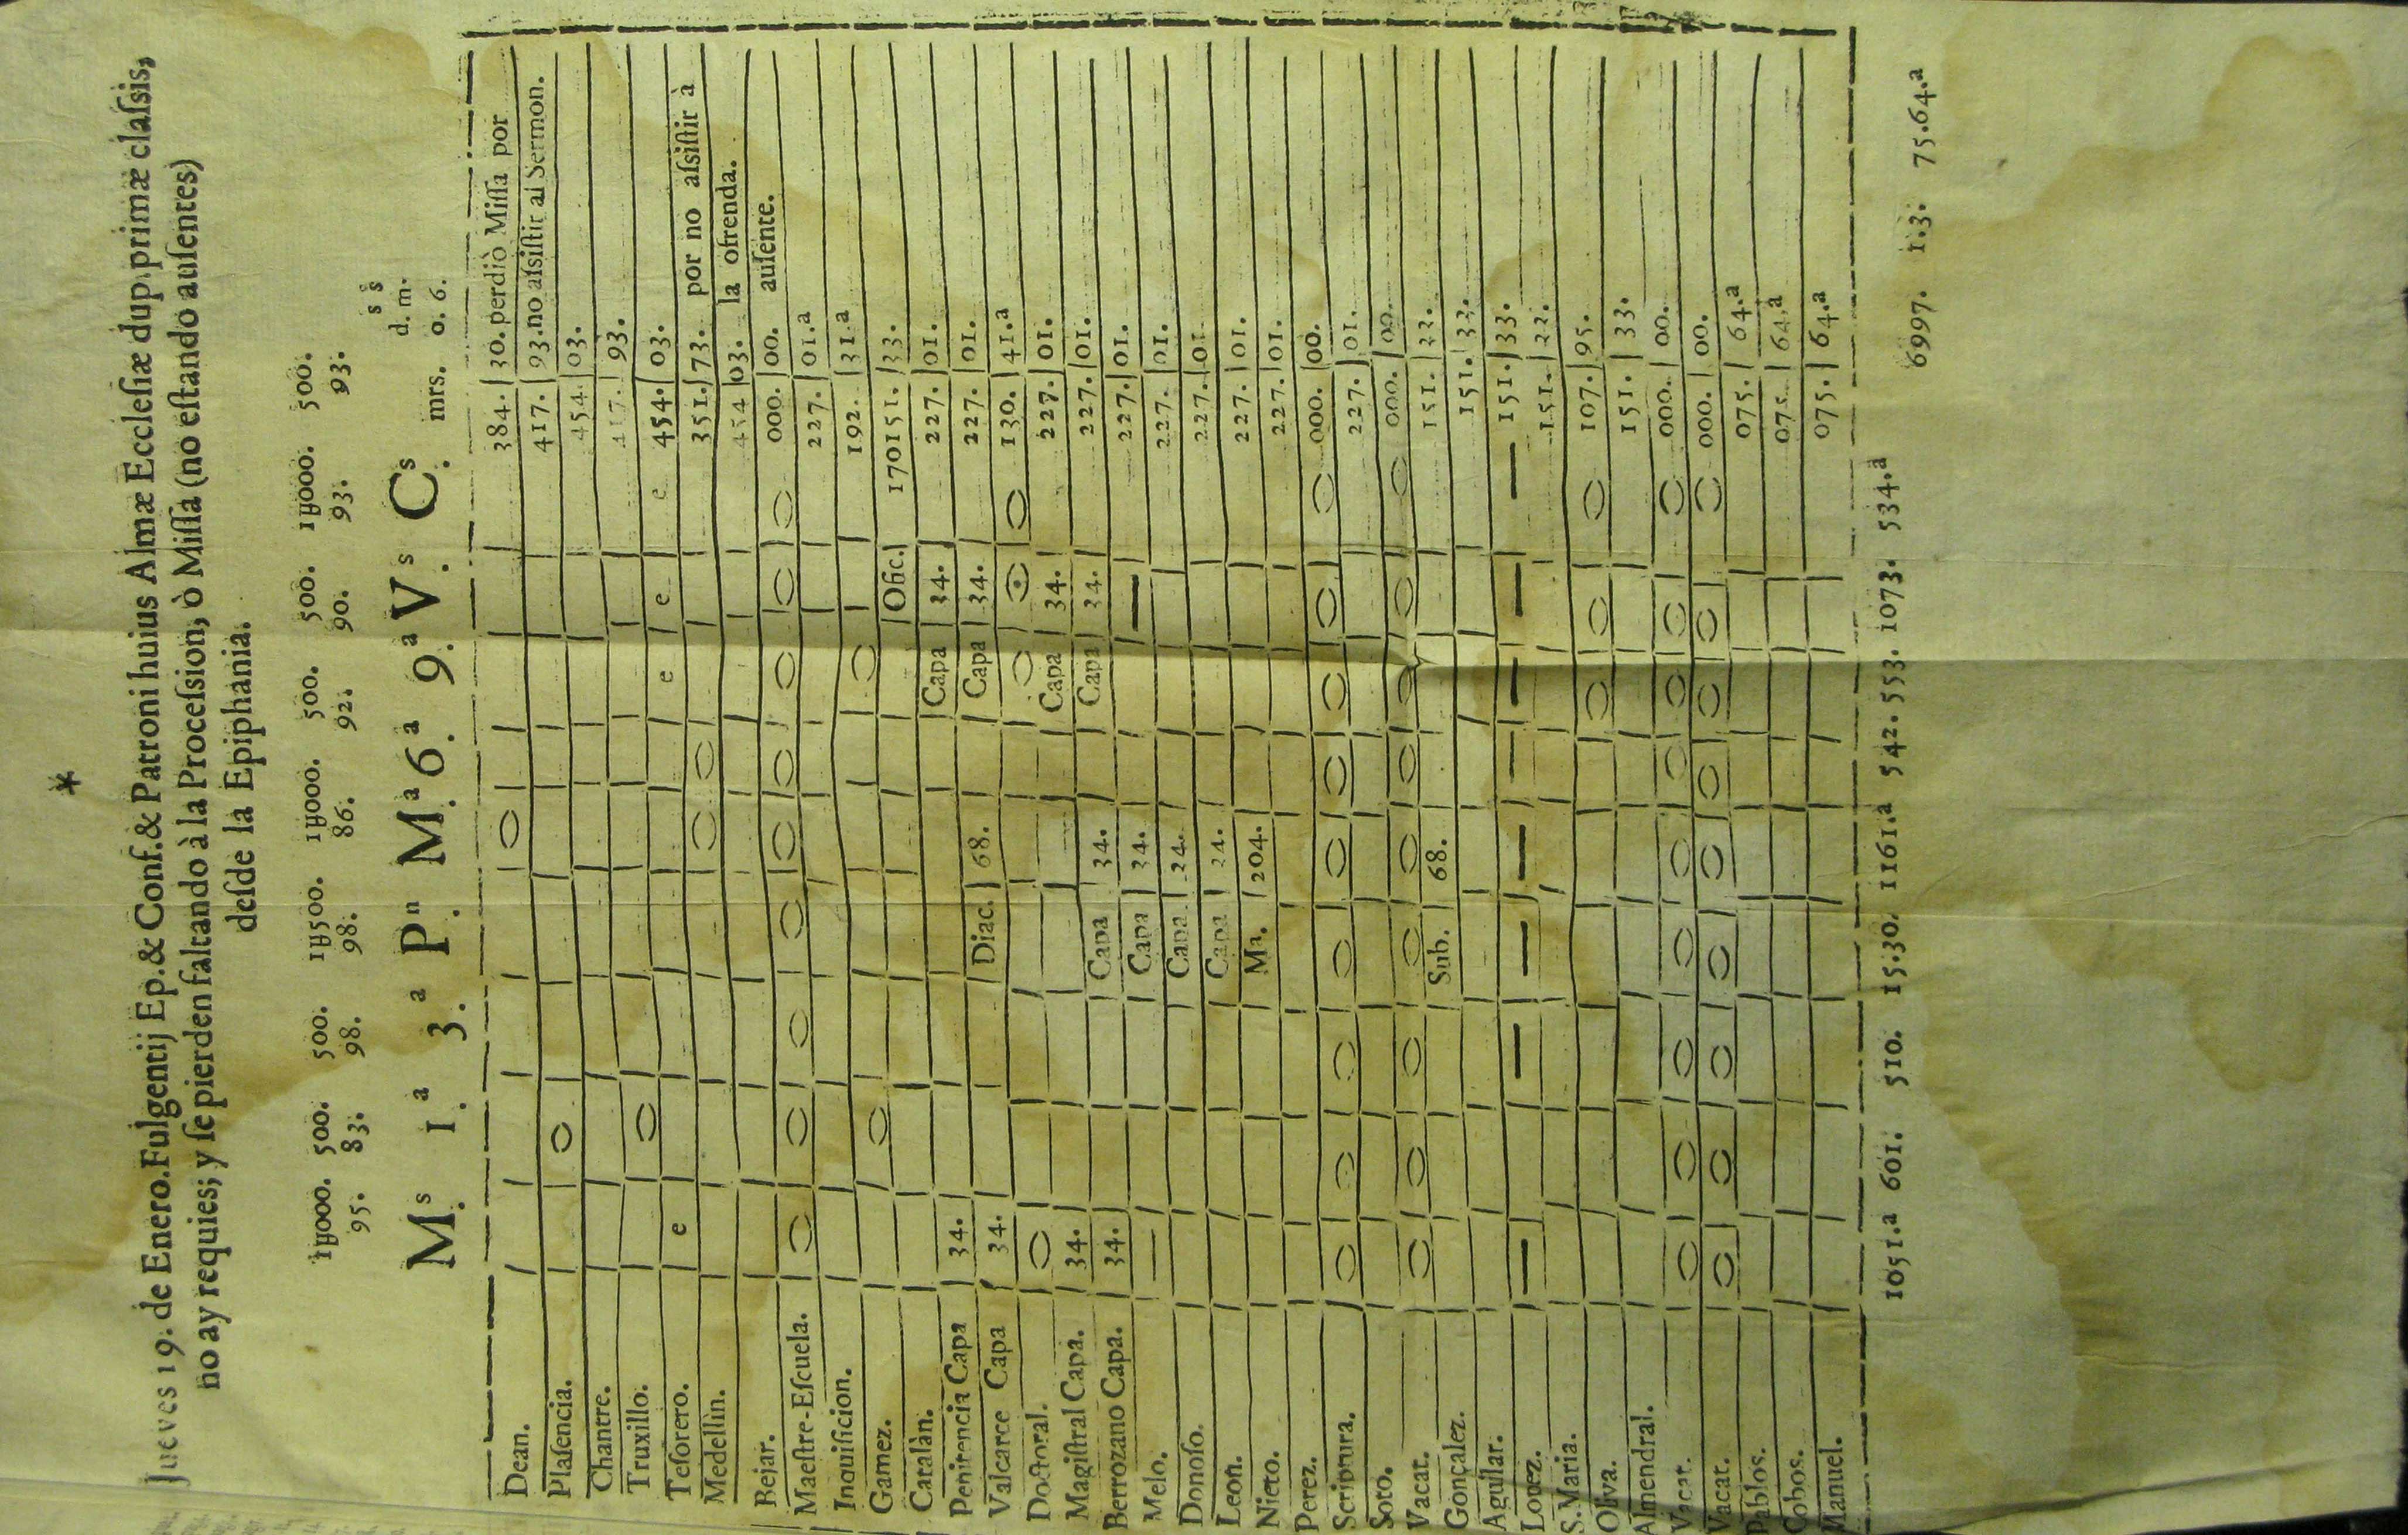 Jueves 19. de Enero. Fulgentij Ep. & Conf. & Patroni huius Almæ Ecclesiæ dup primæ classis,
no ay requies; y se pierden faltando à la Procession, ò Missa (no estando ausentes)
desde la Epiphania.
1U000. 500. 500. 1U500. 1U000. 500. 500. 1U000. 500.
95. 83. 98. 98. 86. 92. 90. 93. 93.
s s
d. m.
Mˢ. 1.ª 3.ª Pⁿ. Mª. 6.ª 9.ª Vˢ. Cˢ. mrs. 0. 6.
Dean. O 384. 30. perdiò Missa por
Plasencia. O 417. 93. no assistir al Sermon.
Chantre. 454. 03.
Truxillo. O 417. 93.
Tesorero. e e e e 454. 03.
Medellin. O O 351. 73. por no assistir à
Bejar. 454 03. la ofrenda.
Maestre-Escuela. O O O O O O O O O 000. 00. ausente.
Inquisicion. 227. 01.a
Gamez. O O 192. 31.a
Catalàn. Ofic. 170151. 33.
Penitencia Capa 34. Capa 34. 227. 01.
Valcarce Capa 34. Diac. 68. Capa 34. 227. 01.
Doctoral. O O O O 130. 41.a
Magistral Capa. 34. Capa 34. 227. 01.
Berrozano Capa. 34. Capa 34. Capa 34. 227. 01.
Melo. — Capa 34. — 227. 01.
Donoso. Capa 34. 227. 01.
Leon. Capa 34. 227. 01.
Nieto. Ma. 204. 227. 01.
Perez. 227. 01.
Scriptura. O O O O O O O O O 000. 00.
Soto. 227. 01.
Vacat. O O O O O O O O O 000. 00.
Gonçalez. Sub. 68. 151. 33.
Aguilar. 151. 33.
Lopez. — — — — — — — — — 151. 33.
S. Maria. 151. 33.
Oliva. O O O 107. 95.
Almendral. 151. 33.
Vacat. O O O O O O O O O 000. 00.
Vacat. O O O O O O O O O 000. 00.
Pablos. 075. 64.a
Cobos. 075. 64.a
Manuel. 075. 64.a
1051.a 601. 510. 15.30. 1161.a 542. 553. 1073. 534.a
6997. 1.3. 75.64.a